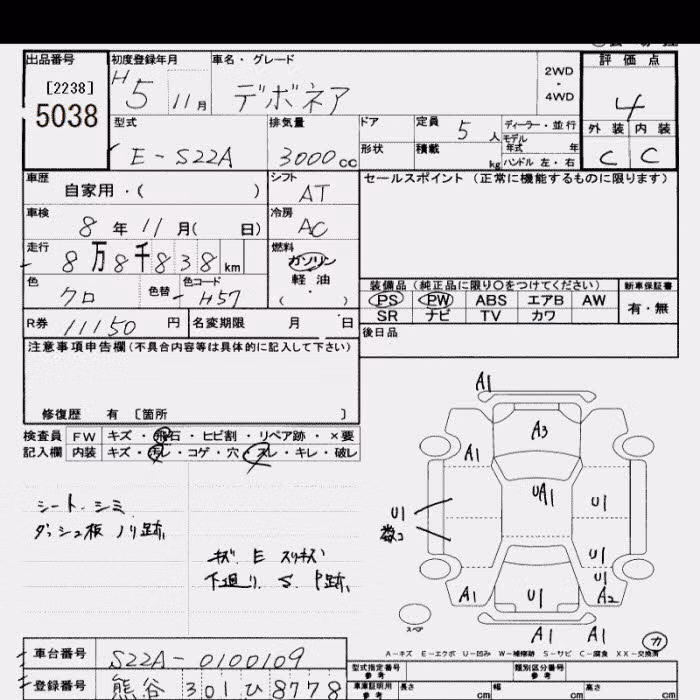 出品番号 初度登録年月 車名・グレード 2WD ・ 4WD 評価点
[2238]
5038
H5 11月 デボネア
4
型式 排気量 ドア 定員 5人 ディーラー・並行
E-S22A 3000cc
形状 積載 kg モデル年式 年 ハンドル 左・右
外装 内装
C C
車歴 自家用・( ) シフト AT
セールスポイント(正常に機能するものに限ります)
車検 8年11月( 日) 冷房 AC
走行 8万8千838km 燃料 ガソリン 軽油 ( )
色 クロ 色替 色コード H57
装備品(純正品に限り○をつけてください) 新車保証書
PS PW ABS エアB AW 有・無
SR ナビ TV カワ
R券 11150円 名変期限 月 日
後日品
注意事項申告欄(不具合内容等は具体的に記入して下さい)
修復歴 有 〔箇所 〕
検査員 FW キズ・飛石・ヒビ割・リペア跡・×要
記入欄 内装 キズ・汚レ・コゲ・穴・スレ・キレ・破レ
シート・シミ
ダッシュ板 ノリ跡
キズ E スリキズ
下廻り S P跡
A1
A3
A1
UA1 U1
U1
数コ
U1
U1
A1 U1 A2
スペア
A1 A1
カ
A-キズ E-エクボ U-凹み W-補修跡 S-サビ C-腐食 XX-交換済
車台番号 S22A-0100109
登録番号 熊谷 301 ひ 8778
型式指定番号 参考 類別区分番号 参考
車庫証明用 参考 長さ cm 幅 cm 高さ cm